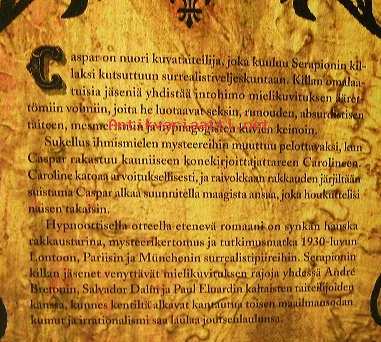 Caspar on nuori kuvataiteilija, joka kuuluu Serapionin kil-
laksi kutsuttuun surrealistiveljeskuntaan. Killan omalaa-
tuisia jäseniä yhdistää intohimo mielikuvituksen ääret-
tömiin voimiin, joita he luotaavat seksin, runouden, absurdistisen
taiteen, mesmerismin ja hypnagogisten kuvien keinoin.
Sukellus ihmismielen mysteereihin muuttuu pelottavaksi, kun
Caspar rakastuu kauniiseen konekirjoittajattareen Carolineen.
Caroline katoaa arvoituksellisesti, ja raivokkaan rakkauden järjiltään
suistama Caspar alkaa suunnitella maagista ansaa, joka houkuttelisi
naisen takaisin.
Hypnoottisella otteella etenevä romaani on synkän hauska
rakkaustarina, mysteerikertomus ja tutkimusmatka 1930-luvun
Lontoon, Pariisin ja Münchenin surrealistipiireihin. Serapionin
killan jäsenet venyttävät mielikuvituksen rajoja yhdessä André
Bretonin, Salvador Dalín ja Paul Eluardin kaltaisten taiteilijoiden
kanssa, kunnes kentiltä alkavat kantautua toisen maailmansodan
kumut ja irrationalismi saa laulaa joutsenlaulunsa.